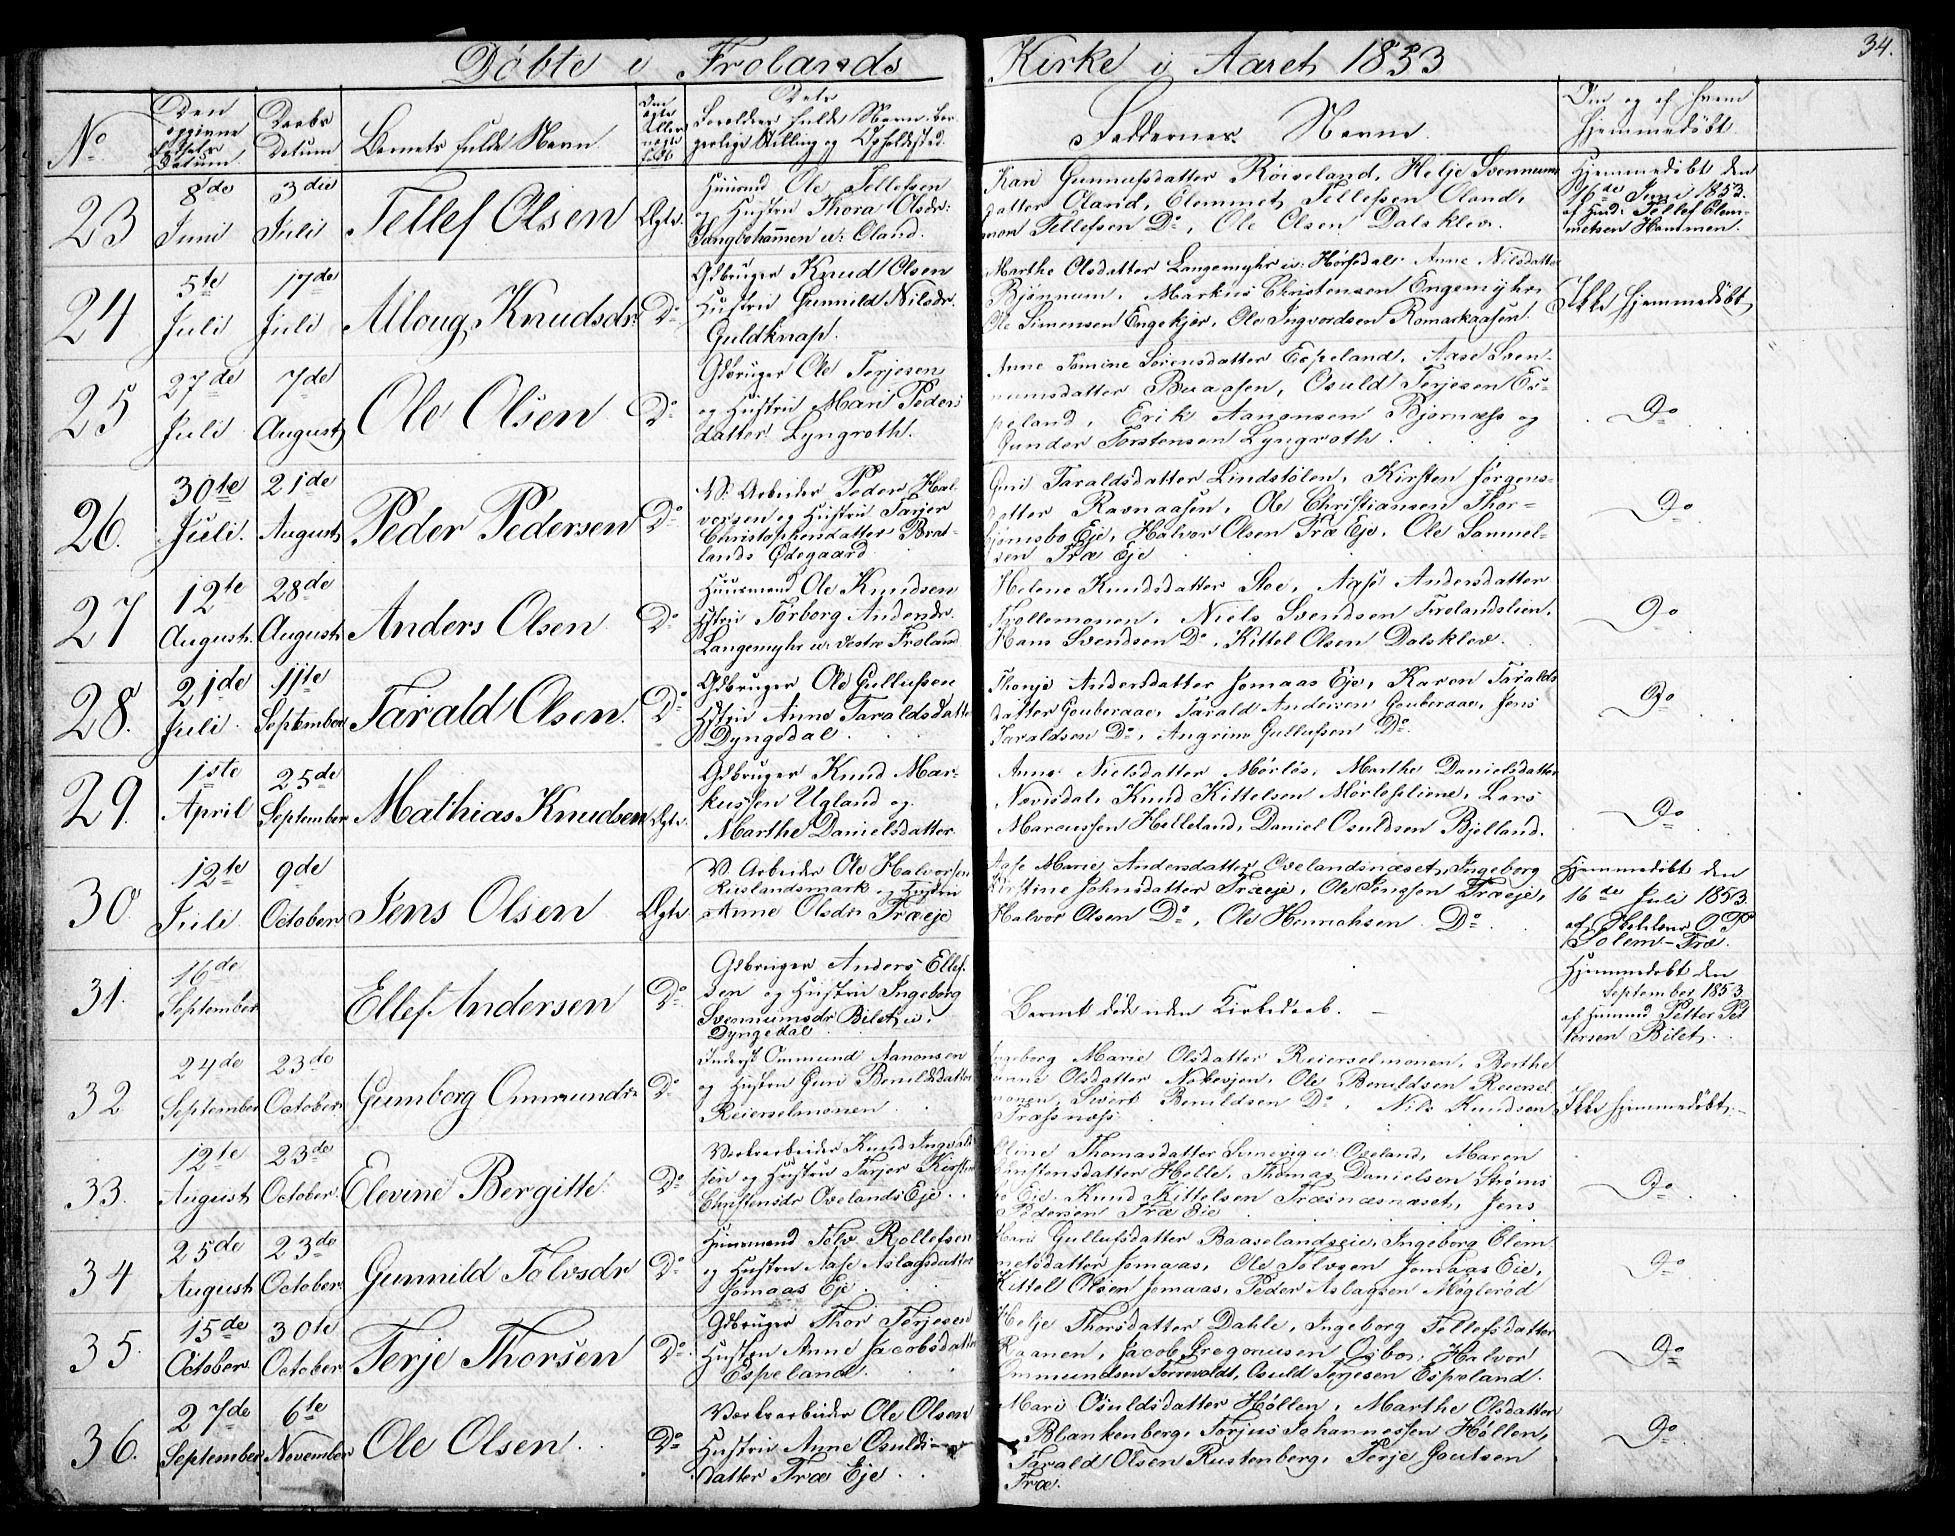 Döbte i Frolands Kirke i Aaret 1853
34.
No
Den opgivne Fødsels Datum.
Daabs Datum
Barnets fulde Navn
Om ægte eller uægte født
Dets Forældres fulde Navn, borgerlige Stilling og Opholdsted.
Faddernes Navne.
Om og af hvem hjemmedöbt.
23
8de Juni
3die Juli
Tellef Olsen
Ægte.
Huusmd Ole Tellefsen
og Hustru Thora Olsdr:
u: Oland.
Kari Gunnufsdatter Röiseland, Helje Svennums
datter Oland, Clemmet Tellefsen Oland,
Tellefsen Do, Ole Olsen Dalsklev.
Hjemmedöbt den
16de Juni 1853.
af Husmd: Tellef Clem-
metsen Hammen.
24
5te Juli
17de Juli
Alloug Knudsdr:
Do
Gdbruger Knud Olsen
Hustru Gunnild Nilsdr.
Guldknap.
Marthe Olsdatter Langemyhr u: Hörsdal. Anne Nilsdatter
Bjönnum, Markus Christensen Engemyhr,
Ole Simonsen Engekjer, Ole Ingvordsen Romarkaasen.
Ikke hjemmedöbt
25
27de Juli
7de August
Ole Olsen
Do
Gdbruger Ole Terjesen
og Hustru Mari Peders
datter Lyngroth.
Anne Tomine Sörensdatter Espeland, Aase Sven-
numsdatter Buaasen, Osuld Terjesen Es-
peland, Erik Aanonsen Bjornæss og
Gunder Torstensen Lyngroth.
Do
26.
30te Juli.
21de August
Peder Pedersen
Do
V. Arbeider Peder Hal-
vorsen og Hustru Tarjer
Christophersdatter Brat-
lands Ödegaard
Guri Taraldsdatter Lindstölen, Kirsten Jörgens-
datter Ravnaasen, Ole Christiansen Thor-
björnsbo Eje, Halvor Olsen Træ Eje, Ole Samuel-
sen Træ Eje
Do
27
12te August.
28de August
Anders Olsen
Do
Huusmand Ole Knudsen
Hstru Torborg Andersdr.
Langemyhr u: Vestre Froland
Helene Knudsdatter Stoe, Aase Andersdatter
Trollemonen, Niels Svendsen Frolandslien,
Hans Svendsen Do, Kittel Olsen Dalsklev.
Do
28.
21de Juli.
11te September
Tarald Olsen.
Do
Gdbruger Ole Gullufsen
Hstru Anne Taraldsdatter
Dyngedal.
Thonje Andersdatter Jomaas Eje, Karen Taralds
datter Gauberaae, Tarald Andersen Gauberaae, Jens
Taraldsen Do, Angrim Gullufsen Do.
Do
29.
1ste April
25de September
Mathias Knudsen
Ægte.
Gdbruger Knud Mar-
kussen Ugland og
Marthe Danielsdatter
Anne Nielsdatter Mörlös, Marthe Danielsdatter
Nævisdal, Knud Kittelsen, Lars
Marcussen Helleland, Daniel Osuldsen Bjelland.
Do
30
12te Juli.
9de October
Jens Olsen
Ægte
V. Arbeider Ole Halvorsen
Rislandsmark og Hustru
Anne Olsdr. Træeje
Aase Marie Andersdatter Ovelandsnæset, Ingeborg
Kirstine Johnsdatter Træeje, Ole Jenssen Træeje,
Halvor Olsen Do, Ole Henrichsen Do.
Hjemmedöbt den
16de Juli 1853.
af Skolelærer O. P.
Solem - Træ.
31.
16de September
Ellef Andersen
Do
Gdbruger Anders Ellef-
sen og Hustru Ingeborg
Svennumsdr. Bilet u.
Dyngedal.
Barnet döde uden Kirkedaab.
Hjemmedöbt den
September 1853
af Huusmd Petter Pet
tersen Bilet.
32
24de September
23de October
Gunborg Ommundsr
Do
Inderst Ommund Aanonsen
og Hustru Guri Berulsdatter
Reierselmonen
Ingeborg Marie Olsdatter Reierselmonen, Berthe
Olsdatter, Ole Berulfsen Reiersel
monen, Sivert Berulfsen Do, Nils Knudsen
Træsnæss.
Ikke hjemmedöbt.
33.
12te August
23de October.
Elevine Bergitte.
Do
Værkarbeider Knud Ingvald
sen og Hustru Tarjer Kirstine
Christensdr Ovelands Eje.
Eline Thomasdatter Sannevig u: Oveland, Maren
datter Helle, Thomas Danielsen Ströms
bo Eje, Knud Kittelsen Træsnæsnæset, Jens
Pedersen Træ Eie
Do
34
25de August
23de October.
Gunnild Tolvsdr
Do
Huusmand Tolv Rollefsen
og Hustru Aase Aslagsdatter
Jomaas Eje.
Mari Gullufsdatter Baaselands eie, Ingeborg Clem
metsdatter Jomaas, Ole Tolvsen Jomaas Eie,
Kittel Olsen Jomaas, Peder Aslagsen Möglerød
Do
35.
15de October
30te October
Terje Thorsen
Do
Gdbruger Thor Terjesen
Hustru Anne Jacobsdatter
Espeland.
Helje Thorsdatter Dahle, Ingeborg Tellefsdatter
Raanen, Jacob Gregoriusen Osbo, Halvor
Ommundsen Torrevoldt, Osuld Terjesen Espeland.
Do
36.
27de September
6te November
Ole Olsen
Do
Værkarbeider Ole Olsen
Hustru Anne Osulds-
datter Træ Eje
Mari Osuldsdatter Höllen, Marthe Olsdatter
Blankenberg, Torjus Johannessen Höllen,
Tarald Olsen Rustenberg, Terje Goutsen
Træ.
Do